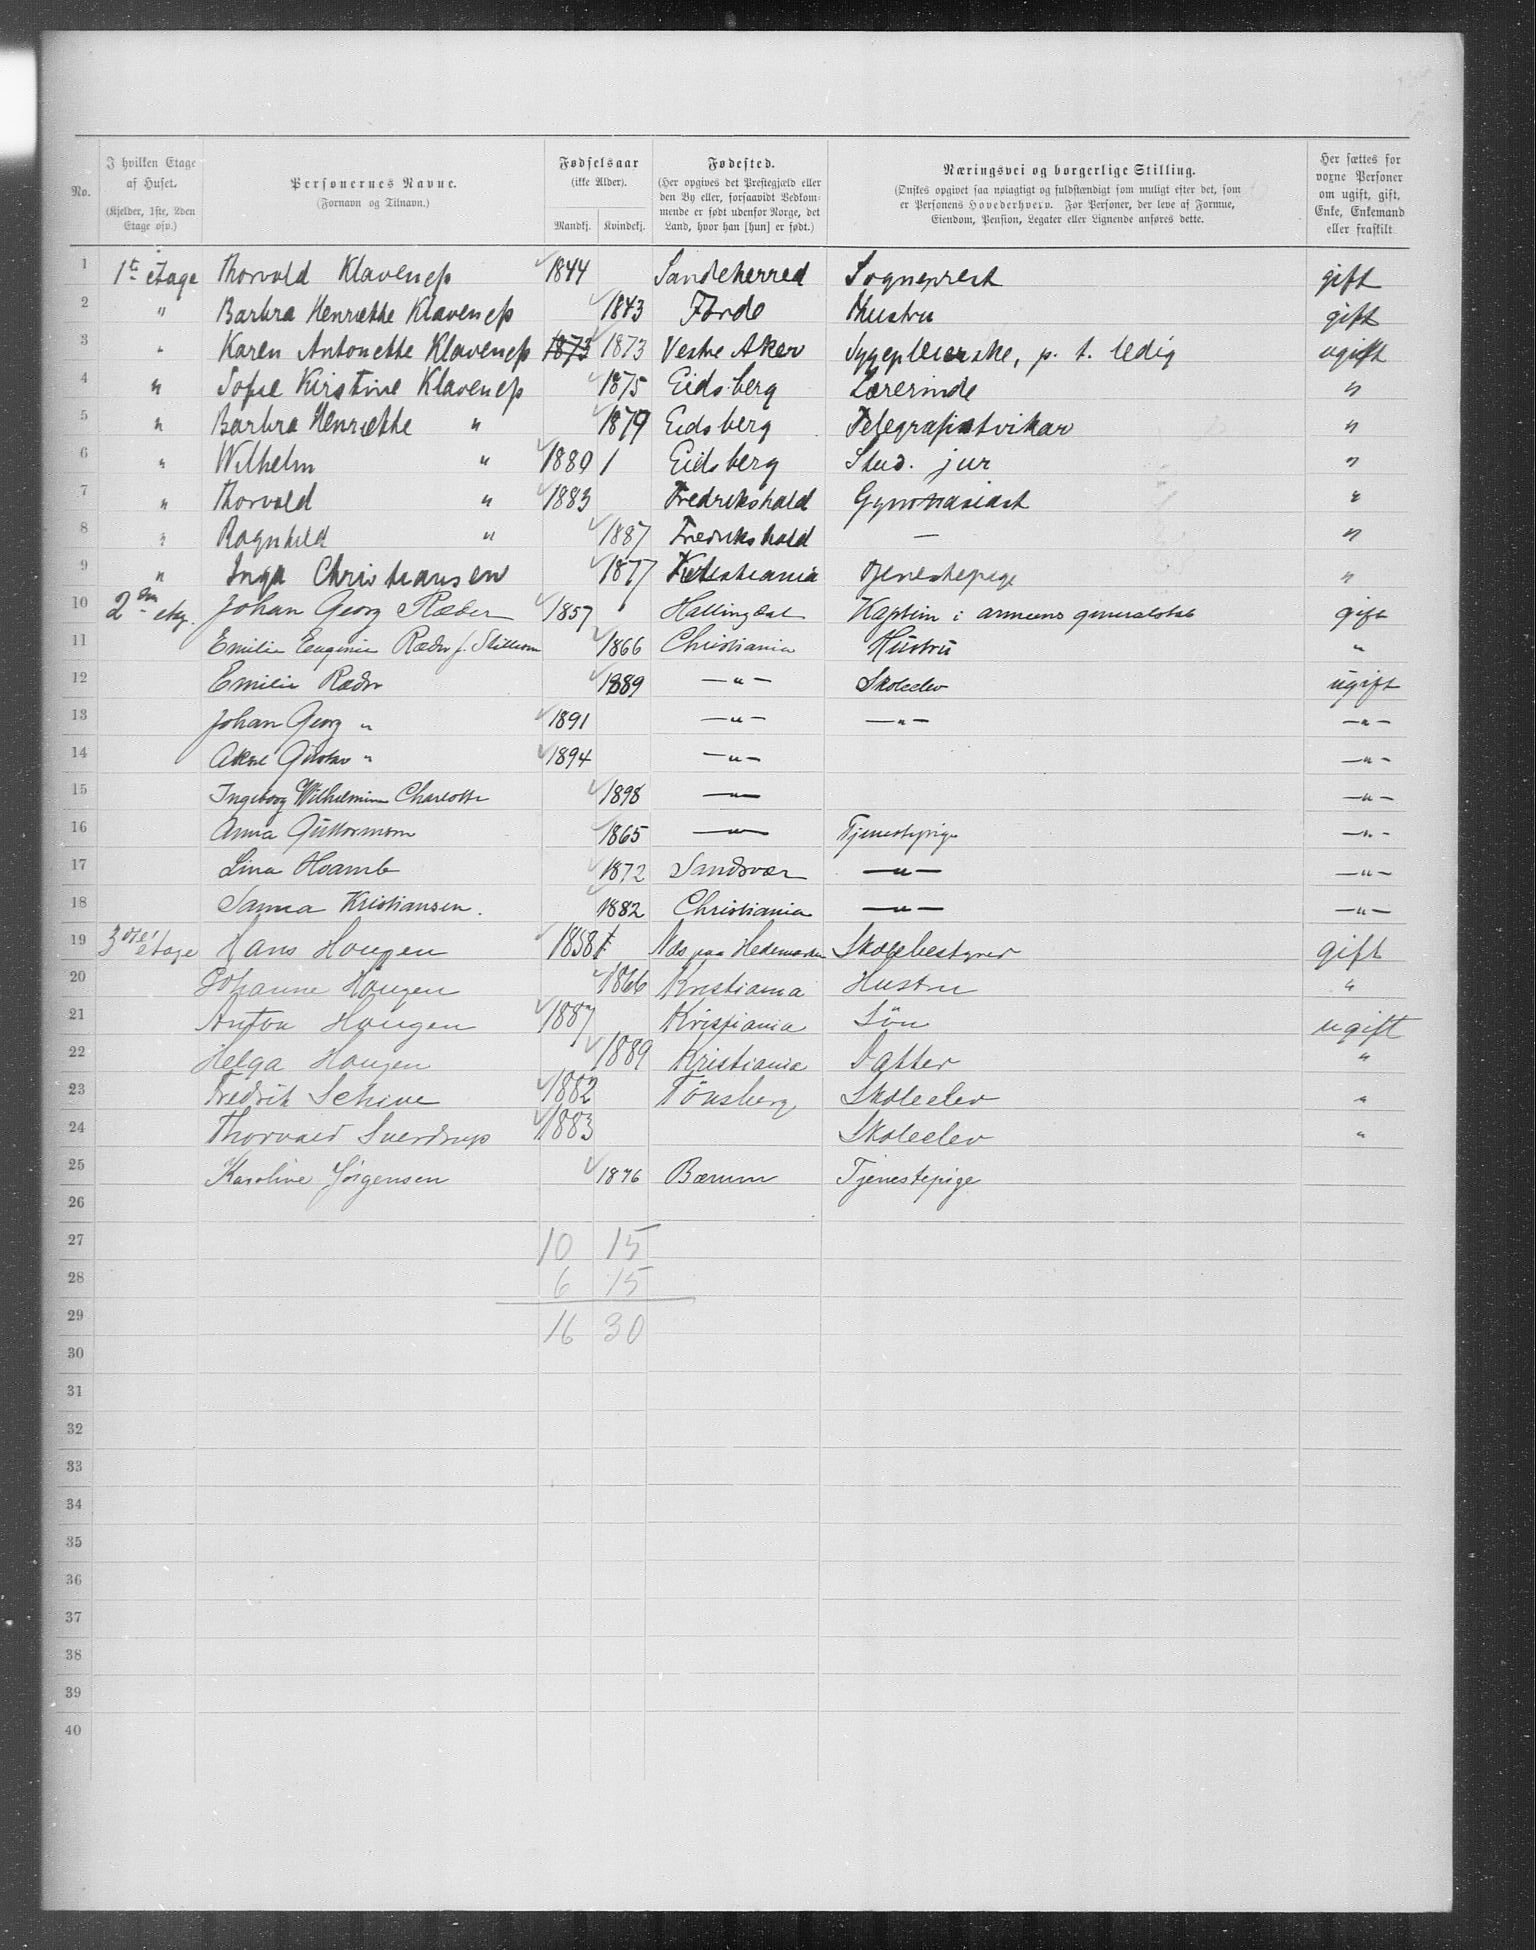 No.
I hvilken Etage af Huset. (Kjelder, 1ste, 2den Etage osv.)
Personernes Navne. (Fornavn og Tilnavn.)
Fødselsaar (ikke Alder). Mandkj. Kvindekj.
Fødested. (Her opgives det Prestegjæld eller den By eller, forsaavidt Vedkommende er født udenfor Norge, det Land, hvor han [hun] er født.)
Næringsvei og borgerlige Stilling. (Ønskes opgivet saa nøiagtigt og fuldstændigt som muligt efter det, som er Personens Hovederhverv. For Personer, der leve af Formue, Eiendom, Pension, Legater eller Lignende anføres dette.
Her sættes for voxne Personer om ugift, gift, Enke, Enkemand eller fraskilt.
1 1ste etage Thorvald Klaveness 1844 Sandeherred Sogneprest gift
2 " Barbra Henriette Klaveness 1843 Förde Hustru gift
3 " Karen Antonette Klaveness 1873 1873 Vestre Aker Sygepleierske, p. t. ledig ugift
4 " Sofie Kirstine Klaveness 1875 Eidsberg Lærerinde "
5 " Barbra Henriette " 1879 Eidsberg Telegrafistvikar "
6 " Wilhelm " 1880 1 Eidsberg Stud. jur "
7 " Thorvald " 1883 Fredrikshald Gymnasiast "
8 " Ragnhild " 1887 Fredrikshald — "
9 " Inga Christiansen 1877 Kristiania Tjenestepige "
10 2den etg. Johan Georg Ræder 1857 Hallingdal Kaptein i armeens generalstab gift
11 Emilie Eugenie Ræder f. 1866 Christiania Hustru "
12 Emilie Ræder 1889 — " — Skoleelev ugift
13 Johan Georg " 1891 — " — — " — — " —
14 Gustav " 1894 — " — — " —
15 Ingeborg Wilhelmine Charlotte 1898 — " — — " —
16 Anna Guttormsen 1865 — " — Tjenestepige — " —
17 Lina Hvamb 1872 Sandsvær — " — — " —
18 Sanna Kristiansen. 1882 Christiania — " — — " —
19 3die etage Hans Hougen 1858 1 Næs paa Hedemarken Skolebestyrer gift
20 Johanne Hougen 1866 Kristiania Hustru "
21 Anton Hougen 1887 Kristiania Sön ugift
22 Helga Hougen 1889 Kristiania Datter "
23 Fredrik Schive 1882 Tönsberg Skoleelev "
24 Thorvald Sverdrup 1883 Skoleelev "
25 Karoline Jørgensen 1876 Bærum Tjenestepige
26
27 10 15
28 6 15
29 16 30
30
31
32
33
34
35
36
37
38
39
40